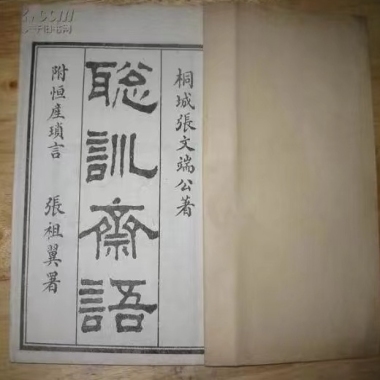 桐城張文端公著
聪訓齋語
附恒産瑣言
張祖翼署